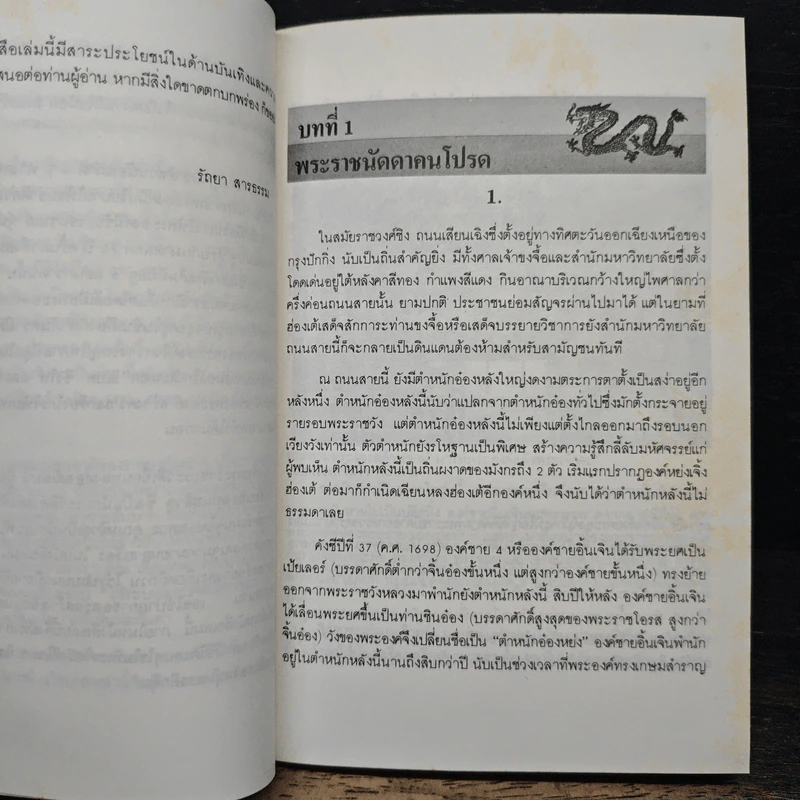 สือเล่มนี้มีสาระประโยชน์ในด้านบันเทิงและคว
สนอต่อท่านผู้อ่าน หากมีสิ่งใดขาดตกบกพร่อง ก็ขอ
รัถยา สารธรรม
บทที่ 1
พระราชนัดดาคนโปรด
1.
ในสมัยราชวงศ์ชิง ถนนเสียนเฉิงซึ่งตั้งอยู่ทางทิศตะวันออกเฉียงเหนือของ
กรุงปักกิ่ง นับเป็นถิ่นสำคัญยิ่ง มีทั้งศาลเจ้าขงจื้อและสำนักมหาวิทยาลัยซึ่งตั้ง
โดดเด่นอยู่ใต้หลังคาสีทอง กำแพงสีแดง กินอาณาบริเวณกว้างใหญ่ไพศาลกว่า
ครึ่งค่อนถนนสายนั้น ยามปกติ ประชาชนย่อมสัญจรผ่านไปมาได้ แต่ในยามที่
ฮ่องเต้เสด็จสักการะท่านขงจื้อหรือเสด็จบรรยายวิชาการยังสำนักมหาวิทยาลัย
ถนนสายนี้ก็จะกลายเป็นดินแดนต้องห้ามสำหรับสามัญชนทันที
ณ ถนนสายนี้ ยังมีตำหนักอ๋องหลังใหญ่งดงามตระการตาตั้งเป็นสง่าอยู่อีก
หลังหนึ่ง ตำหนักอ๋องหลังนี้นับว่าแปลกจากตำหนักอ๋องทั่วไปซึ่งมักตั้งกระจายอยู่
รายรอบพระราชวัง แต่ตำหนักอ๋องหลังนี้ไม่เพียงแต่ตั้งไกลออกมาถึงรอบนอก
เวียงวังเท่านั้น ตัวตำหนักยังรโหฐานเป็นพิเศษ สร้างความรู้สึกลี้ลับมหัศจรรย์แก่
ผู้พบเห็น ตำหนักหลังนี้เป็นถิ่นผงาดของมังกรถึง 2 ตัว เริ่มแรกปรากฏองค์หย่งเจิ้ง
ฮ่องเต้ ต่อมาก็กำเนิดเฉียนหลงฮ่องเต้อีกองค์หนึ่ง จึงนับได้ว่าตำหนักหลังนี้ไม่
ธรรมดาเลย
คังซีปีที่ 37 (ค.ศ. 1698) องค์ชาย 4 หรือองค์ชายอิ้นเจินได้รับพระยศเป็น
เป้ยเลอร์ (บรรดาศักดิ์ต่ำกว่าจิ้นอ๋องขั้นหนึ่ง แต่สูงกว่าองค์ชายขั้นหนึ่ง) ทรงย้าย
ออกจากพระราชวังหลวงมาพำนักยังตำหนักหลังนี้ สิบปีให้หลัง องค์ชายอิ้นเจิน
ได้เลื่อนพระยศขึ้นเป็นท่านชินอ๋อง (บรรดาศักดิ์สูงสุดของพระราชโอรส สูงกว่า
จิ้นอ๋อง) วังของพระองค์จึงเปลี่ยนชื่อเป็น "ตำหนักอ๋องหย่ง" องค์ชายอิ้นเจินพำนัก
อยู่ในตำหนักหลังนี้นานถึงสิบกว่าปี นับเป็นช่วงเวลาที่พระองค์ทรงเกษมสำราญ